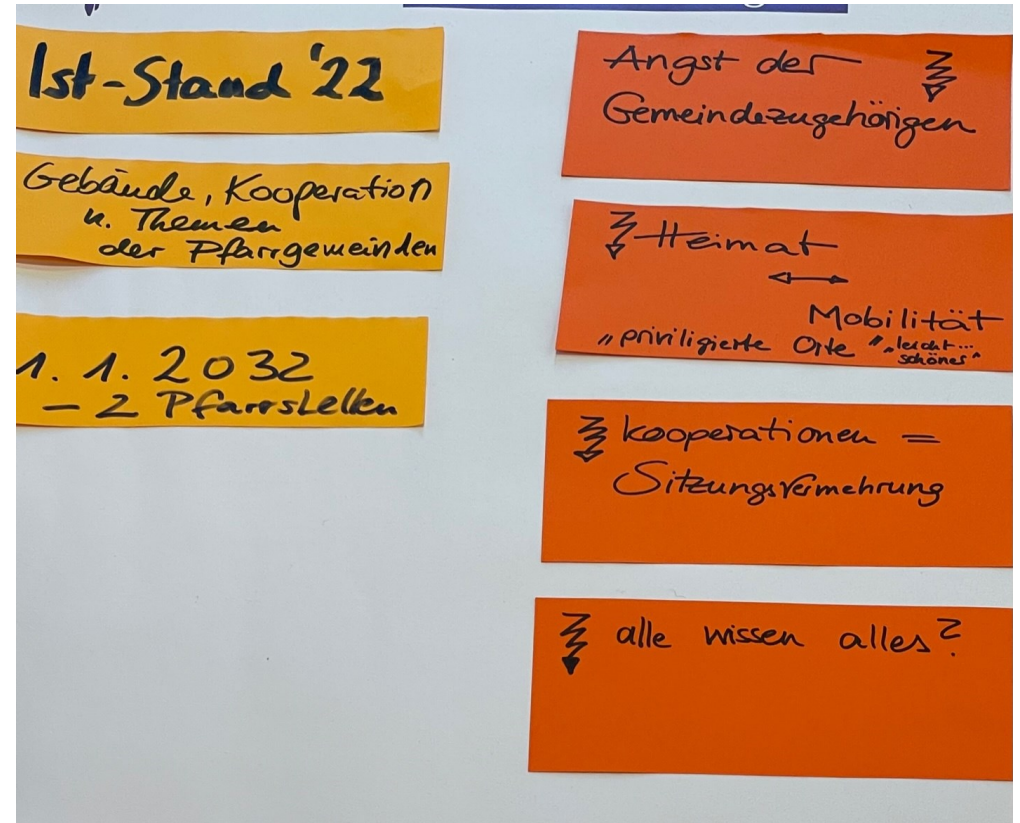 Ist-Stand '22
Gebäude, Kooperation
u. Themen
der Pfarrgemeinden
1. 1. 2032
– 2 Pfarrstellen
Angst der
Gemeindezugehörigen
Heimat
Mobilität
"priviligierte Orte" "leicht...
schönes"
Kooperationen =
Sitzungsvermehrung
alle wissen alles?